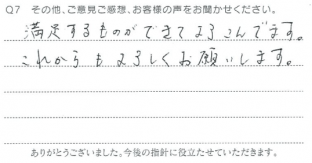 Q7 その他、ご意見ご感想、お客様の声をお聞かせください。
満足するものができてよろこんでます。
これからもよろしくお願いします。
ありがとうございました。今後の指針に役立たせていただきます。